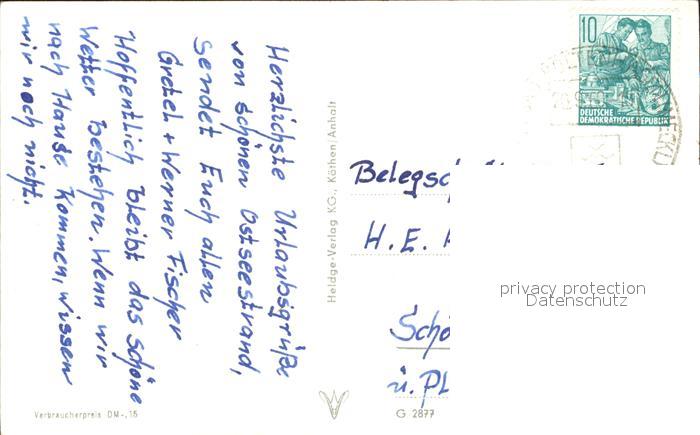 Herzlichste Urlaubsgrüße
vom schönen Ostseestrand,
sendet Euch allen
Gretel + Werner Fischer
Hoffentlich bleibt das schöne
Wetter bestehen. Wenn wir
nach Hause kommen, wissen
wir noch nicht.
Verbraucherpreis DM -,15
Heldge-Verlag KG., Köthen/Anhalt
10
DEUTSCHE
DEMOKRATISCHE REPUBLIK
H. E.
u. Pl
G 2877
privacy protection
Datenschutz